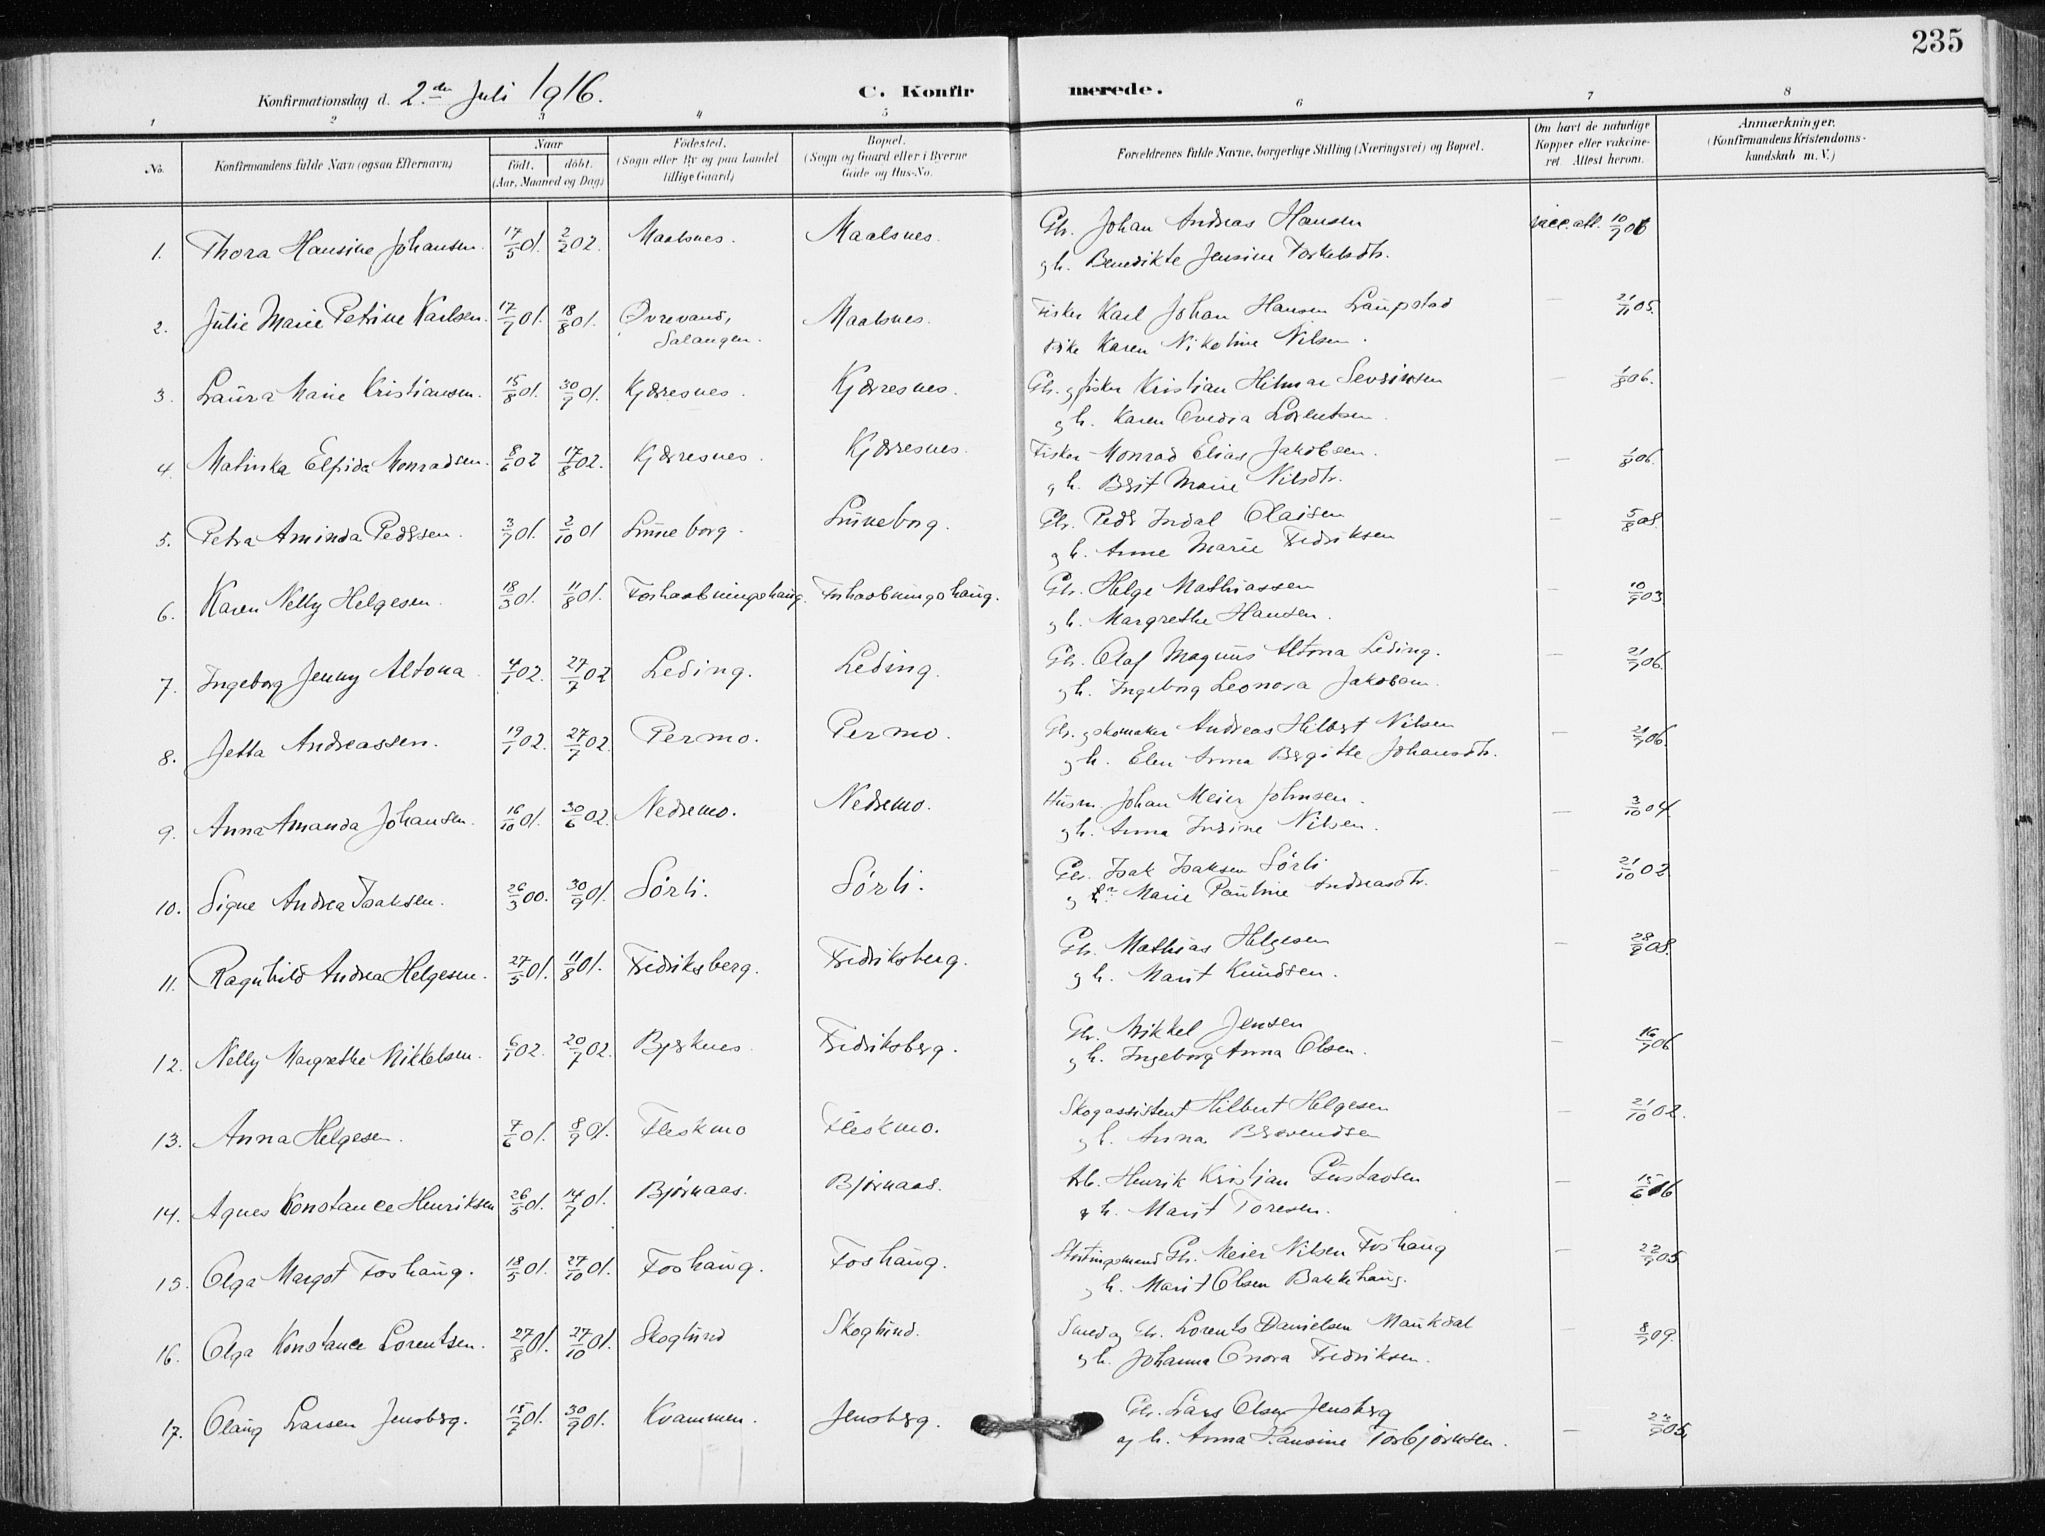 235
Konfirmationsdag d. 2den Juli 1916. C. Konfirmerede.
1 2 3 4 5 6 7 8
No. Konfirmandens fulde Navn (ogsaa Efternavn) Naar født. døbt. (Aar, Maaned og Dag) Fødested. (Sogn eller By og paa Landet tillige Gaard) Bopæl. (Sogn og Gaard eller i Byerne Gade og Hus-No. Forældrenes fulde Navne, borgerlige Stilling (Næringsvei) og Bopæl. Om havt de naturlige Kopper eller vaccineret. Attest herom. Anmærkninger. (Konfirmandens Kristendomskundskab m. V.)
1. Thora Hansine Johansen. 17/5 01. 2/2 02. Maalsnes. Maalsnes. Gbr. Johan Andreas Hansen vacc. att. 10/7 06
og h. Benedikte Jensine Torkelsdtr.
2. Julie Marie Petrine Karlsen. 17/7 01. 18/8 01. Øvrevand, Salangen. Maalsnes. Fisker Karl Johan Hansen Laupstad — 21/11 05.
Pike Karen Nikoline Nilsen.
3. Laura Marie Kristiansen. 15/8 01. 30/9 01. Kjærresnes. Kjærresnes. Gbr. og fisker Kristian Hilmar Sevrinsen — 1/8 06.
og h. Karen Ovedia Lorentsen.
4. Malinka Elfida Monradsen. 8/6 02 17/8 02. Kjærresnes. Kjærresnes. Fisker Monrad Elias Jakobsen. — 1/8 06.
og h. Brit Marie Nilsdtr.
5. Petra Aminda Pedersen. 3/7 01. 2/10 01 Luneborg. Luneborg. Gbr. Peder Indal Olaisen — 5/8 08.
og h. Anne Marie Fredriksen
6. Karen Nelly Helgesen. 18/3 01. 11/8 01. Forhaabningshaug. Forhaabningshaug. Gbr. Helge Mathiassen — 10/9 03.
og h. Margrethe Hansen.
7. Ingeborg Jenny Altona 4/1 02. 27/7 02 Leding. Leding. Gbr. Olaf Magnus Altona Leding. — 21/7 06.
og h. Ingeborg Leonora Jakobsen.
8. Jetta Andreassen. 19/1 02. 27/7 02. Permo. Permo. Gbr. og skomaker Andreas Hilbert Nilsen — 21/7 06.
og h. Elen Anna Bergitte Johansdtr.
9. Anna Amanda Johansen. 16/10 01. 30/6 02. Nedremo. Nedremo. Husm. Johan Meier Johnsen. — 3/10 04.
og h. Anna Indine Nilsen.
10. Signe Andrea Isaksen. 26/3 00. 30/9 01. Sørli. Sørli. Gbr. Isak Isaksen Sørli — 21/10 02
og Marie Pauline Andreasdtr.
11. Ragnhild Andrea Helgesen. 27/5 01. 11/8 01. Fredriksberg. Fredriksberg. Gbr. Mathias Helgesen — 28/9 08.
og h. Marit Knudsen.
12. Nelly Margrethe Mikkelsen. 6/1 02. 20/7 02. Bjerknes Fredriksberg. Gbr. Mikkel Jensen — 16/7 06
og h. Ingeborg Anna Olsen.
13. Anna Helgesen. 7/6 01. 8/9 01. Fleskmo Fleskmo. Skogassistent Hilbert Helgesen — 21/10 02.
og h. Anna Brevendsen
14. Agnes Konstance Henriksen 26/5 01. 14/7 01. Bjørnaas. Bjørnaas. Arb. Henrik Kristian Gustavsen — 15/6 16
og h. Marit Toresen.
15. Olga Margot Foshaug. 18/5 01. 27/10 01. Foshaug. Foshaug. Stortingsmand Gbr. Meier Nilsen Foshaug — 22/9 05
og h. Marit Olsen Bakkehaug.
16. Olga Konstance Lorentsen. 27/8 01. 27/10 01. Skoglund Skoglund. Smed og Gbr. Lorents Danielsen Maukdal — 8/7 09.
og h. Johanna Onora Fredriksen.
17. Olaug Larsen Jensberg. 15/7 01. 30/9 01. Kvammen. Jensberg. Gbr. Lars Olsen Jensberg — 23/9 05.
og h. Anna Hansine Torbjørnsen.